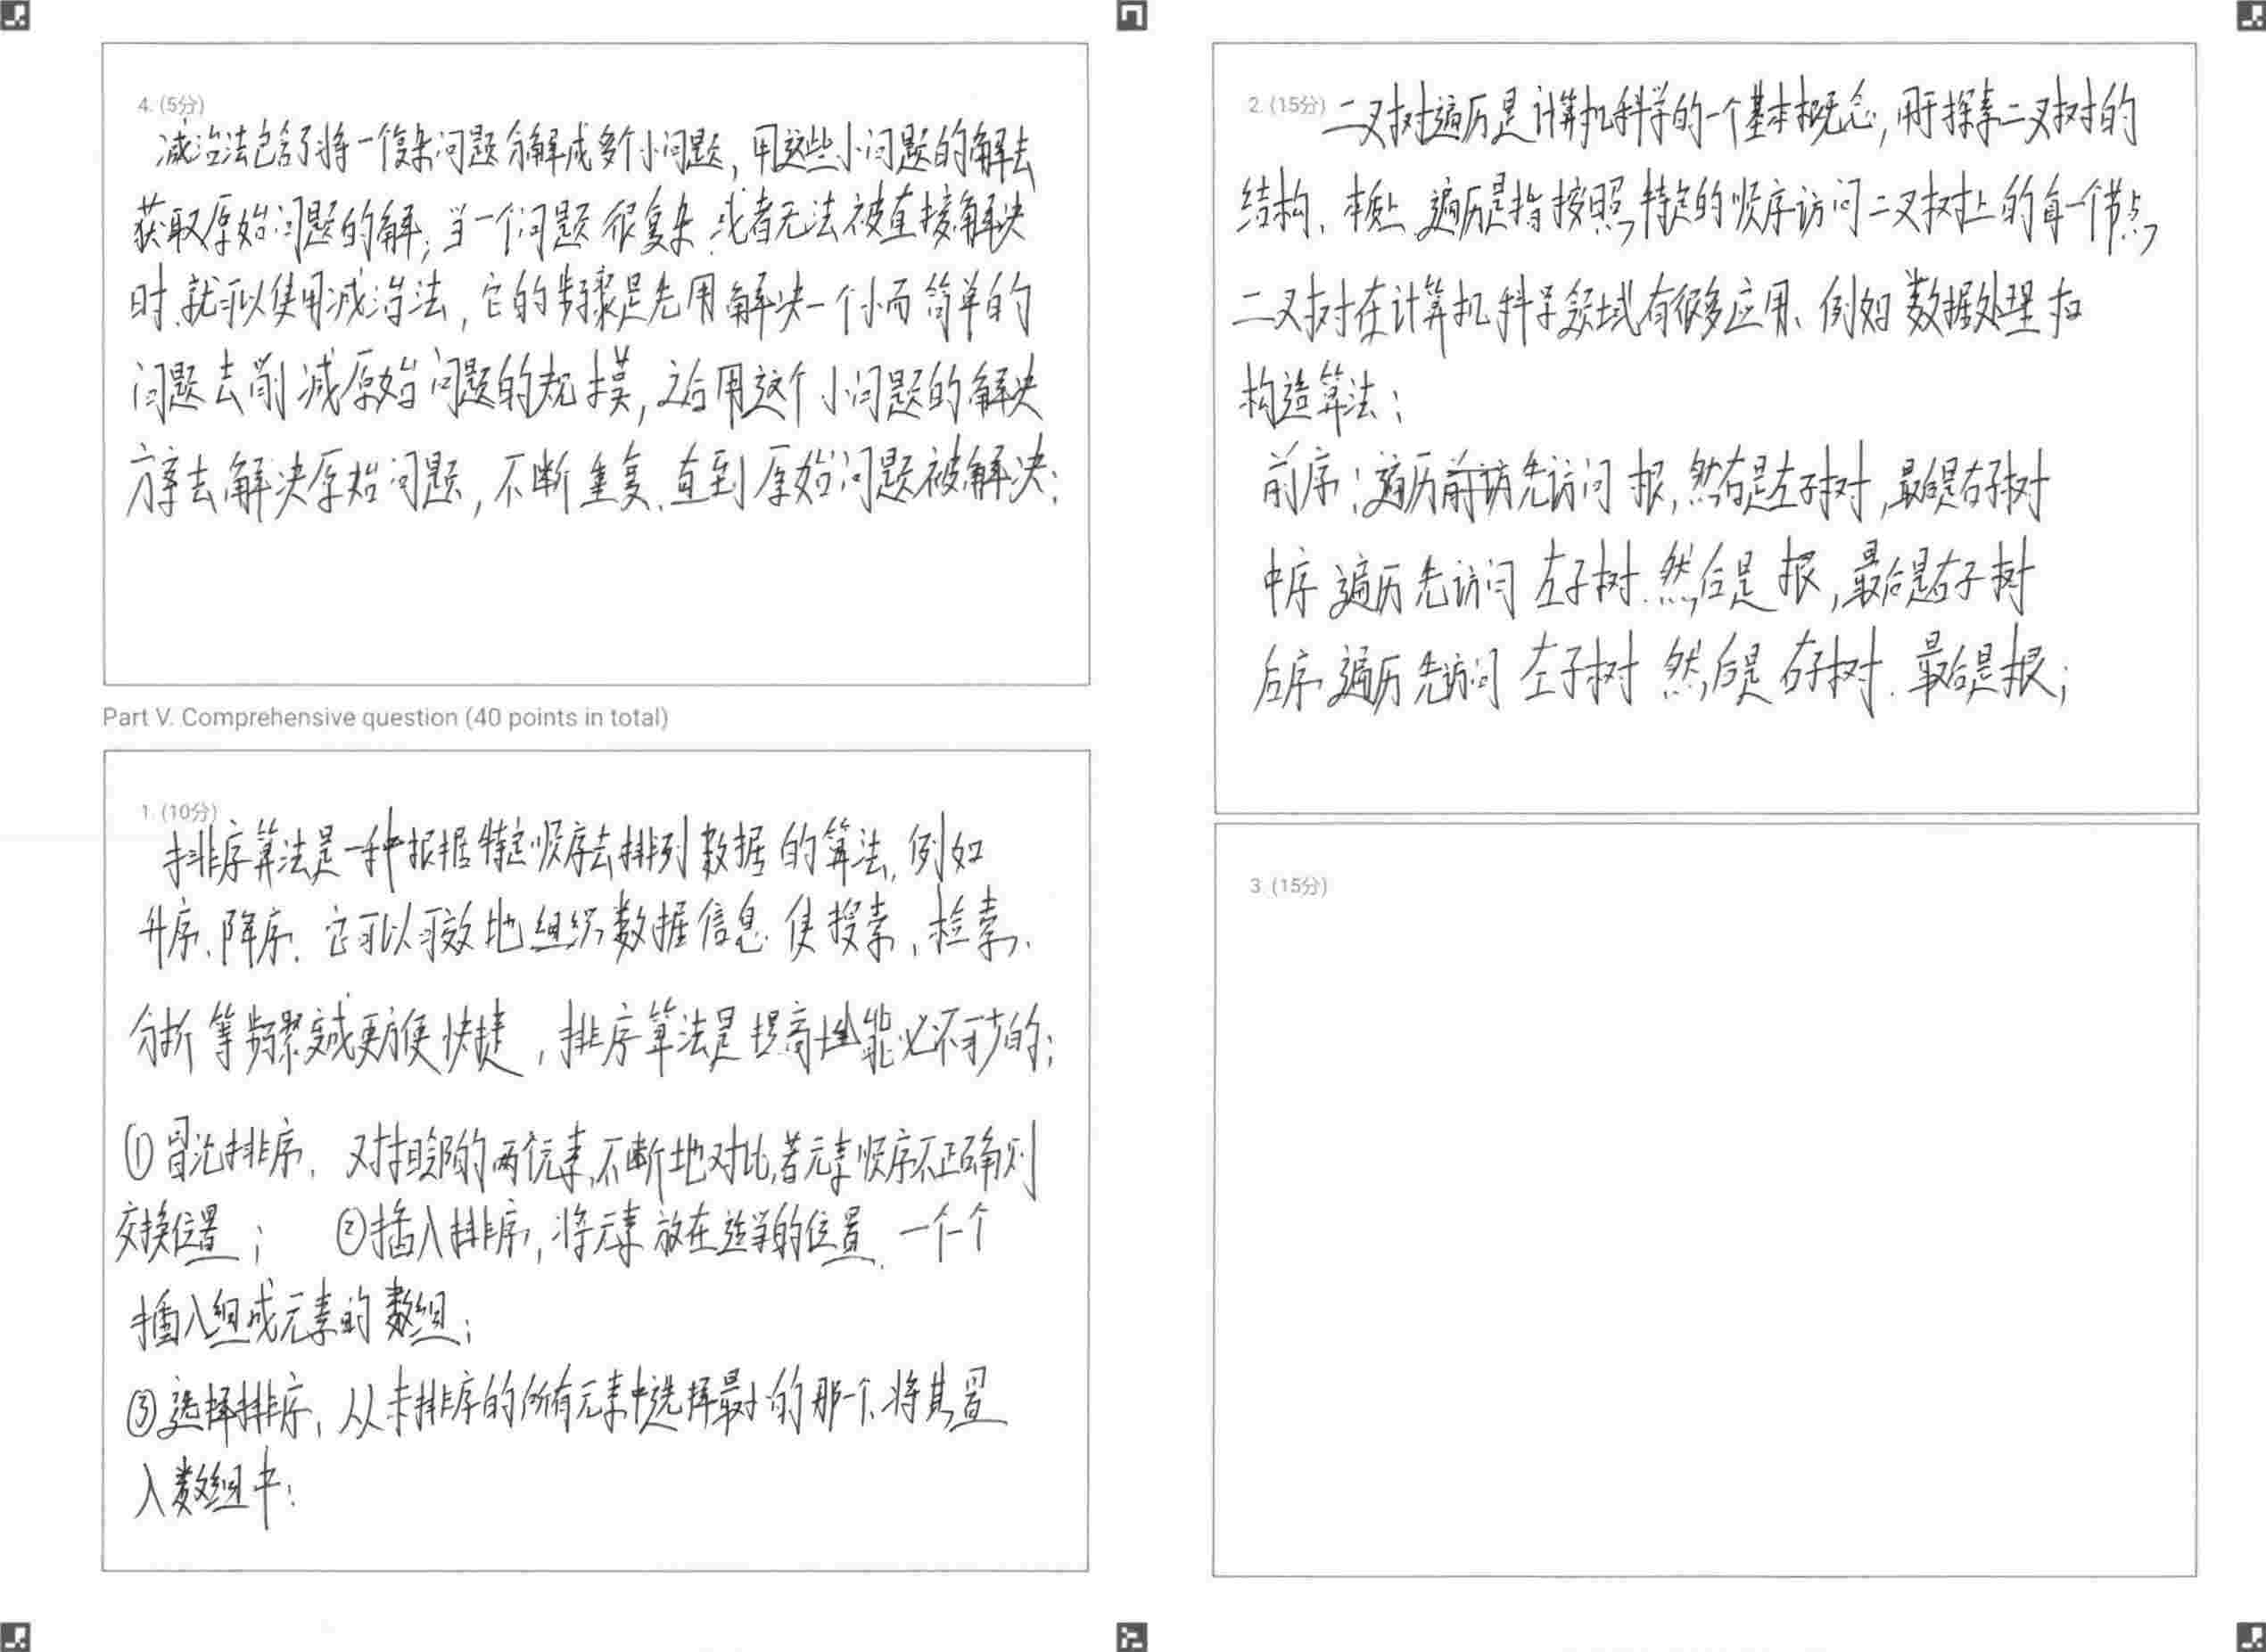 4. (5分)
减治法包含了将一个复杂问题分解成多个小问题，用这些小问题的解去
获取原始问题的解；当一个问题很复杂、或者无法被直接解决
时、就可以使用减治法，它的步骤是先用解决一个小而简单的
问题去削减原始问题的规模，之后用这个小问题的解决
方案去解决原始问题，不断重复、直到原始问题被解决；
Part V. Comprehensive question (40 points in total)
1. (10分)
排序算法是一种根据特定顺序去排列数据的算法，例如
升序、降序．它可以有效地组织数据信息．使搜索、检索、
分析等步骤变成更方便快捷，排序算法是提高性能必不可少的；
①冒泡排序，对相邻的两个元素，不断地对比，若元素顺序不正确则
交换位置； ②插入排序，将元素放在适当的位置、一个一个
插入组成元素的数组；
③选择排序，从未排序的所有元素中选择最小的那一个、将其置
入数组中；
2. (15分)
二叉树遍历是计算机科学的一个基本概念，用于探索二叉树的
结构、本质上遍历是指按照特定的顺序访问二叉树上的每一个节点，
二叉树在计算机科学领域有很多应用、例如数据处理和
构造算法；
前序：遍历先访问根，然后是左子树，最后是右子树
中序遍历先访问左子树．然后是根，最后是右子树
后序遍历先访问左子树 然后是右子树．最后是根；
3. (15分)